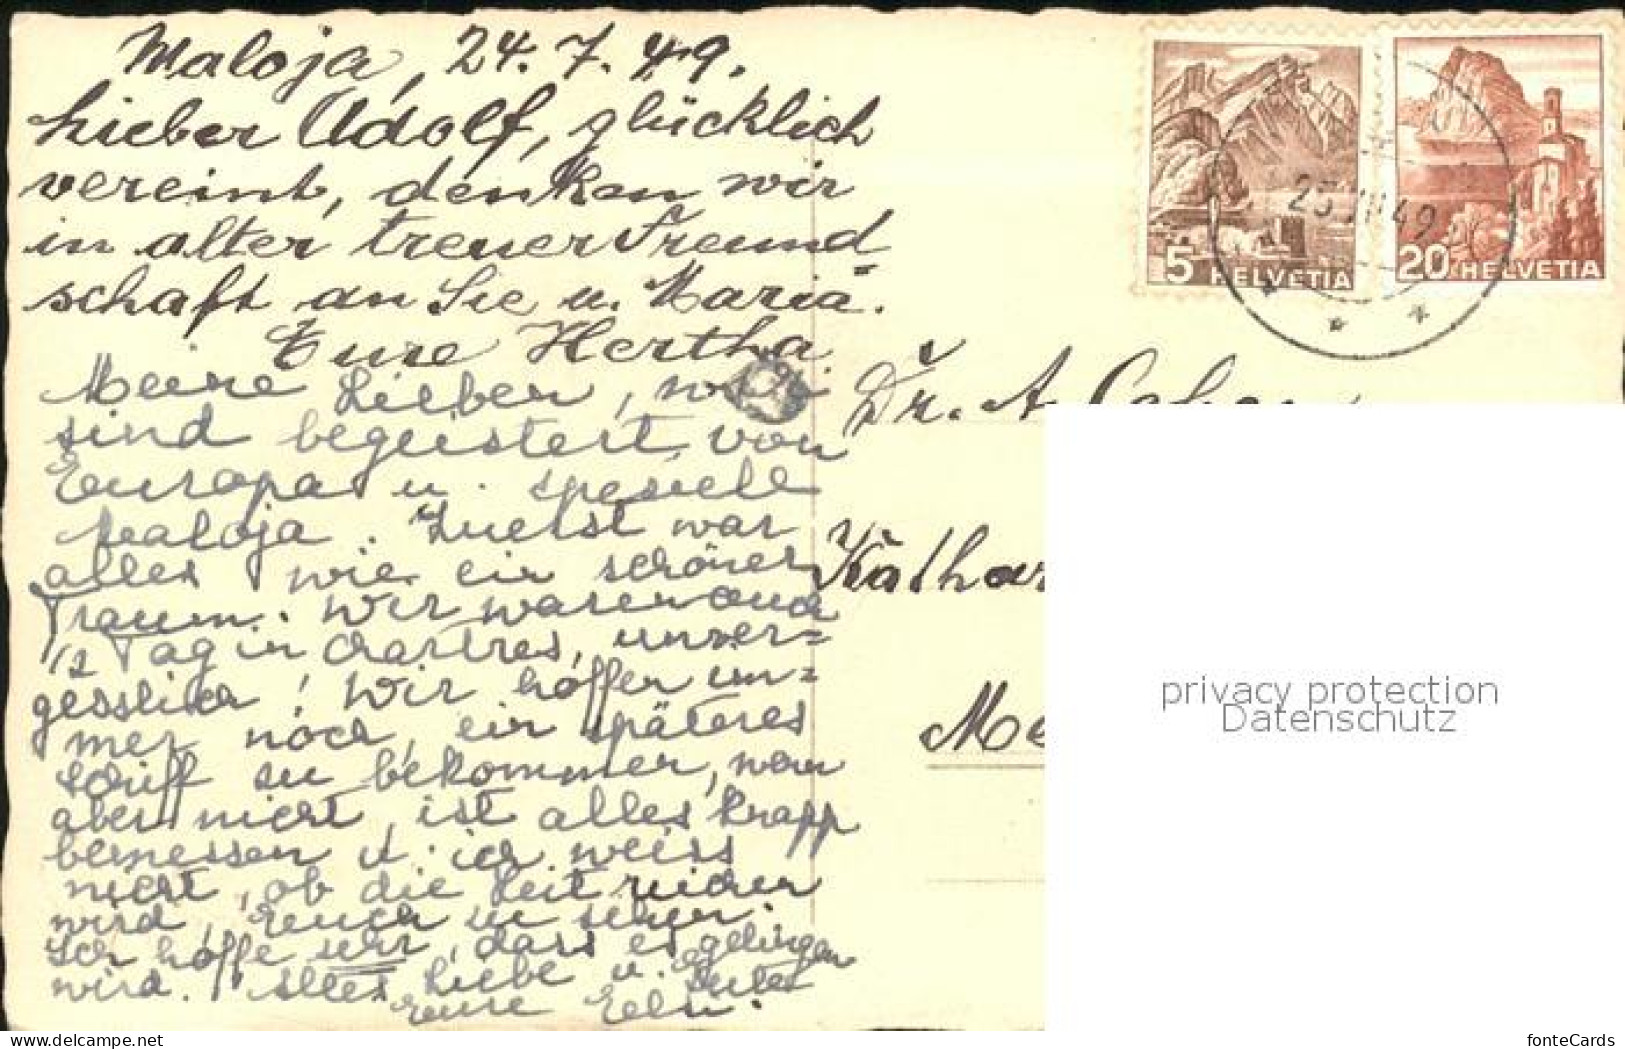 Maloja, 24. 7. 49.
Lieber Adolf, glücklich
vereint, denken wir
in alter treuer Freund=
schaft an Sie u. Maria.
Eure Hertha
Meine Lieben, wir
sind begeistert von
Europa u. speziell
Maloja. Zuerst war
alles wie ein schöner
Traum. Wir waren auch
1/2 Tag in Chartres, unver=
gesslich! Wir hoffen im=
mer noch, ein späteres
Schiff zu bekommen, wenn
aber nicht, ist alles knapp
bemessen u. ich weiss
nicht, ob die Zeit reichen
wird, Euch zu sehen.
Ich hoffe sehr, dass es gelingen
wird. Alles Liebe u. Gute
Eure
5 HELVETIA
20 HELVETIA
25 VII 49
Dr. A.
Kathar
Me
privacy protection
Datenschutz
www.delcampe.net
fonteCards